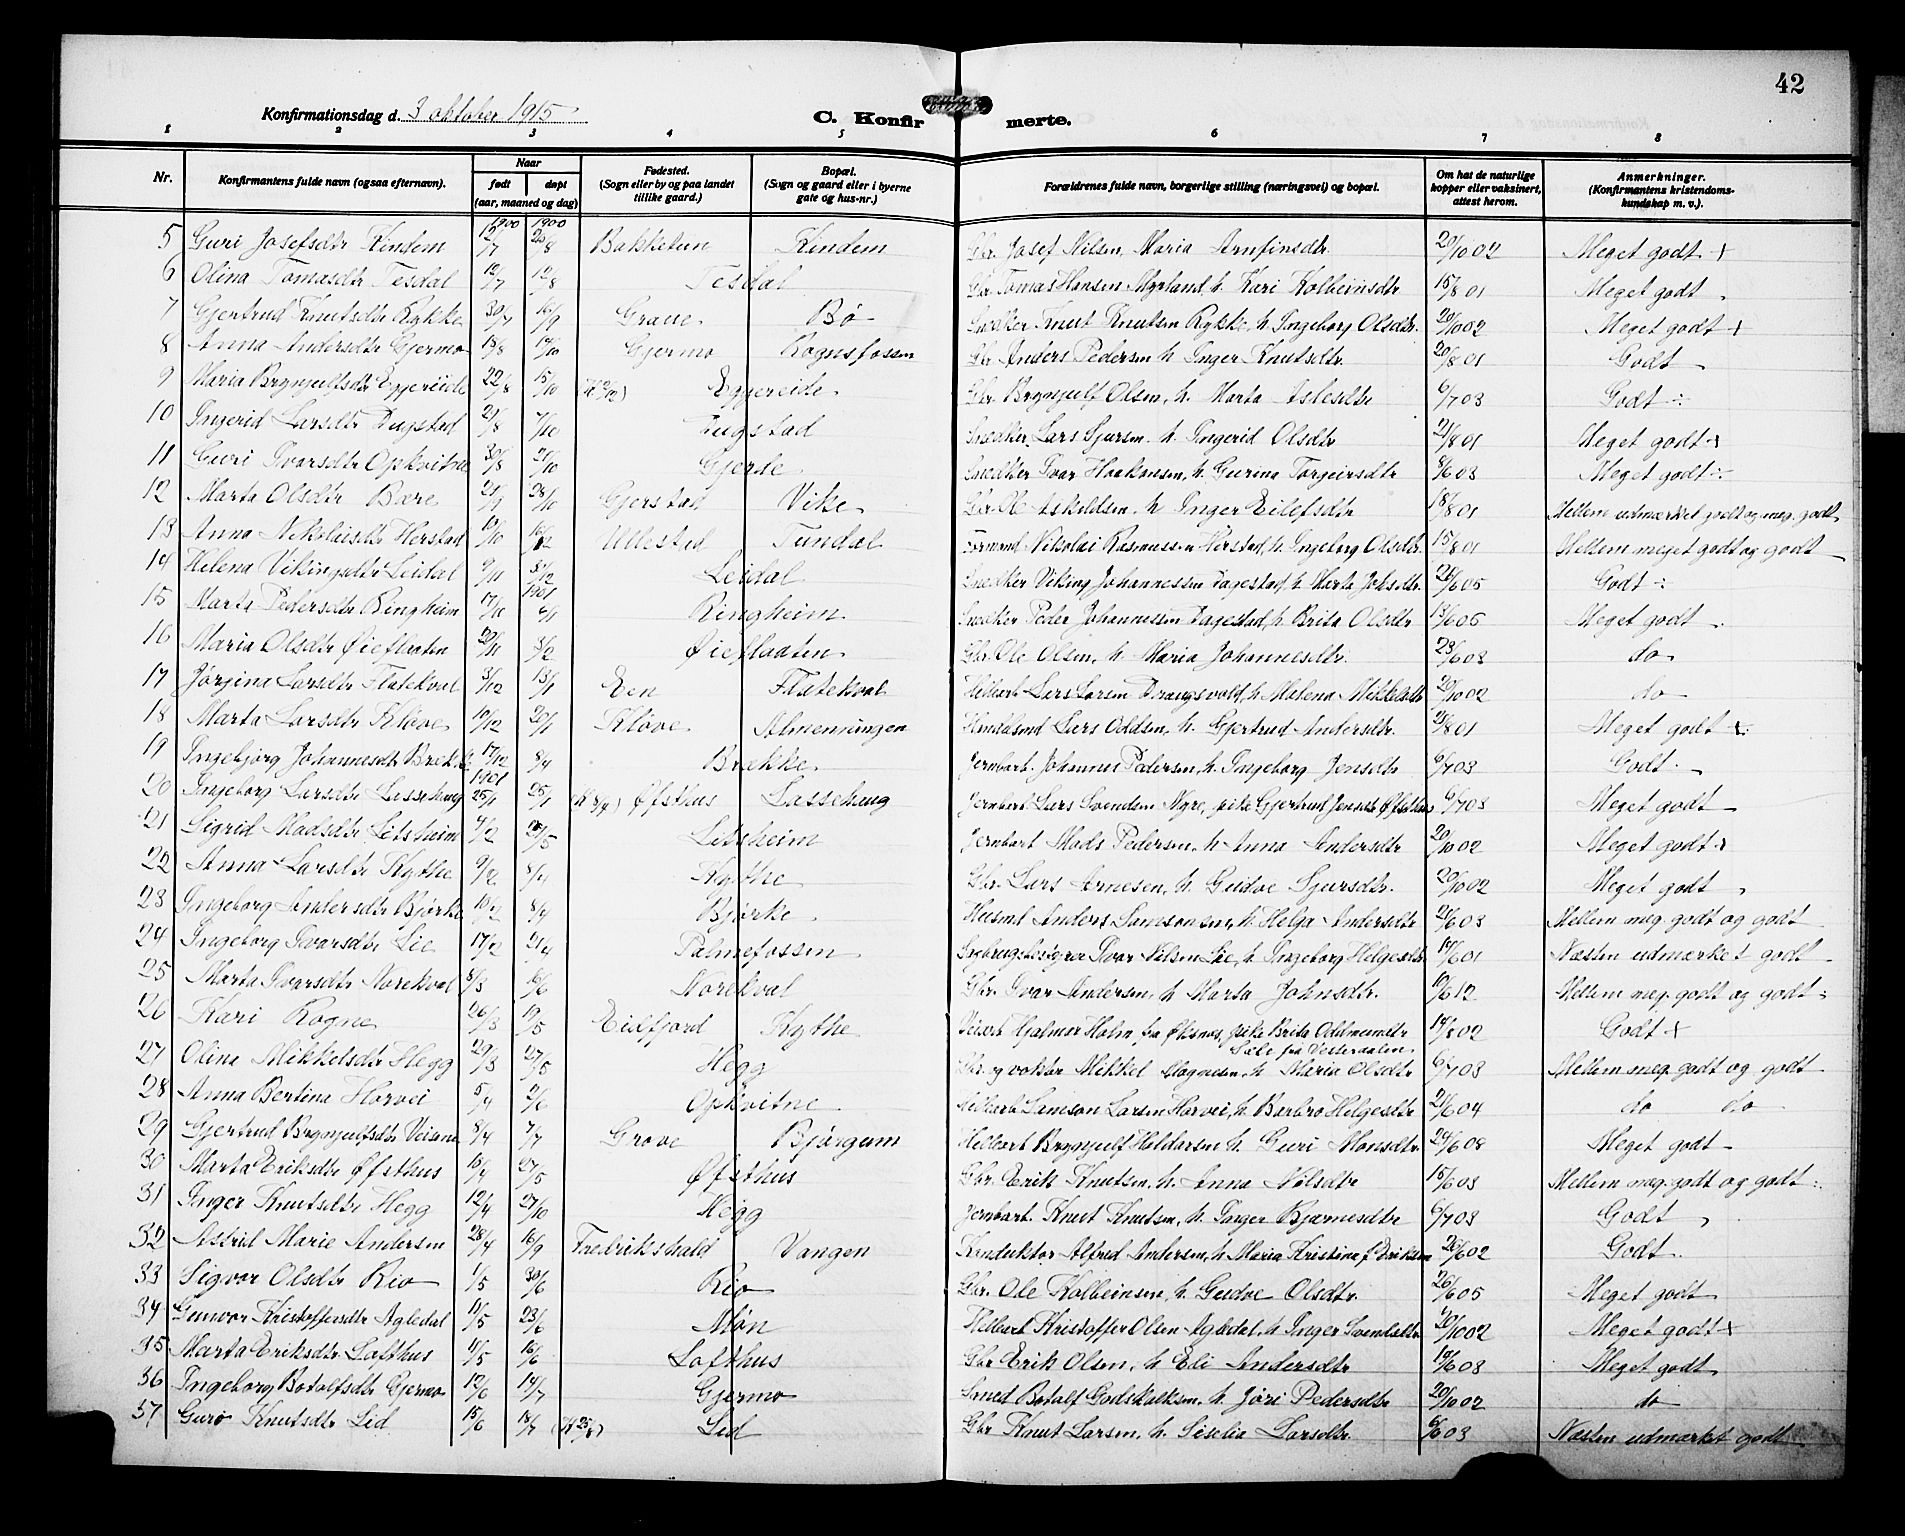 42
Konfirmationsdag d. 3 oktober 1915
C. Konfirmerte.
1 2 3 4 5 6 7 8
Nr. Konfirmantens fulde navn (ogsaa efternavn). Naar født døpt (aar, maaned og dag) Fødested. (Sogn eller by og paa landet tillike gaard.) Bopæl. (Sogn og gaard eller i byerne gate og hus-nr.) Forældrenes fulde navn, borgerlige stilling (næringsvei) og bopæl. Om hat de naturlige kopper eller vaksinert, attest herom. Anmerkninger. (Konfirmantens kristendomskundskap m. v.).
1900 1900
5 Guri Josefsdtr Kindem 12/7 20/8 Bakketun Kindem Gbr. Josef Nilsen, Maria Arnfinsdtr. 20/10 02 Meget godt +
6 Olina Tomasdtr Tesdal 12/7 12/8 Tesdal Gbr Tomas Hansen Myrland, h. Kari Kolbeinsdtr 15/8 01 Meget godt
7 Gjertrud Knutsdtr Rykke 30/7 16/9 Graue Bø Snedker Knut Knutsen Rykke, h. Ingeborg Olsdtr. 20/10 02 Meget godt +
8 Anna Andersdtr Gjermo 13/8 14/10 Gjermo Rognsfossen Gbr Anders Pedersen h. Inger Knutsdtr. 20/8 01 Godt
9 Maria Brynjulfsdtr Eggereide 22/8 15/10 Eggereide Gbr. Brynjulf Olsen, h. Marta Aslesdtr 6/7 03 Godt
10 Ingerid Larsdtr Dugstad 21/8 7/10 Dugstad Snedker Lars Sjursen h. Ingerid Olsdtr 21/8 01 Meget godt +
11 Guri Ivarsdtr Opkvitne 30/8 21/10 Gjerde Snedker Ivar Haakonsen, h. Gurina Torgeirsdtr 8/6 03 Meget godt
12 Marta Olsdtr Bære 28/10 Gjerstad Vike Gbr Ole Askeldsen, h. Inger Eilefsdtr 18/8 01 Mellem udmærket godt og meg. godt
13 Anna Nikolaisdtr Herstad 19/10 16/12 Ullestad Tundal Formand Nikolai Rasmussen Herstad, h. Ingeborg Olsdtr. 15/8 01 Mellem meget godt og godt
14 Helena Vikingsdtr Leidal 9/11 Leidal Snedker Viking Johannessen Dagestad, h. Marta Johsdtr 24/6 05 Godt
1901
15 Marta Pedersdtr Ringheim 17/11 6/1 Ringheim Snedker Peder Johannessen Dagestad, h. Brita Olsdtr 13/6 05 Meget godt
16 Maria Olsdtr Øieflaaten 30/11 3/2 Øieflaaten Gbr. Ole Olsen, h. Maria Johannesdtr. 23/6 03 do
17 Jørgina Larsdtr Flatekval 3/12 13/1 Een Flatekval Lars Larsen h. Helena Mikkelsdtr 20/10 02 do
18 Marta Larsdtr Kløve 10/12 20/1 Kløve Almenningen Lars Oddsen, h. Gjertrud Andersdtr. 21/8 01 Meget godt +
19 Ingebjørg Johannesdtr Brekke 17/12 8/4 Brække Jernbarb. Johannes Pedersen, h. Ingeborg Jensdtr 6/7 03 Godt
1901
20 Ingeborg Larsdtr Lassehaug 25/1 25/1 Øfsthus Lassehaug Jernbarb Lars Svendsen Myre, pike Gjertrud Jensdtr Øfsthus 6/7 03 Meget godt
21 Sigrid Madsdtr Letsheim 4/2 /5 Letsheim Jernbarb Mads Pedersen, h. Anna Andersdtr 20/10 02 Meget godt +
22 Anna Larsdtr Kythe 9/2 8/4 Kythe Gbr. Lars Arnesen, h. Gudve Sjursdtr. 20/10 02 Meget godt
23 Ingeborg Andersdtr Bjørke 10/2 8/4 Bjørke Husmd Anders Samsonsen, h. Helga Andersdtr 21/6 03 Mellem meg. godt og godt
24 Ingeborg Ivarsdtr Lie 17/2 21/4 Palmefossen Ivar Nilsen Lie, h. Ingeborg Helgesdtr 14/6 01 Næsten udmærket godt
25 Marta Ivarsdtr Norekval 8/3 6/6 Norekval Gbr. Ivar Andersen, h. Marta Johnsdtr. 19/6 12 Mellem meg. godt og godt
26 Kari Rogne 26/3 19/5 Eidfjord Kythe Hjalmar Holm fra Øksnes, pike Brita Oddmundsdtr Sæle fra Vesterdalen 14/8 02 Godt +
27 Olina Mikkelsdtr Hegg 29/3 27/5 Hegg Mikkel Magnesen, h. Maria Olsdtr 6/7 03 Mellem meg. godt og godt
28 Anna Bertina Horvei 5/4 2/6 Opkvitne Samson Larsen Horvei, h. Barbro Helgesdtr 21/6 04 do do
29 Gjertrud Brynjulfsdtr Veisene 8/4 7/7 Grove Bjørgum Brynjulf Haldorsen h. Guri Monsdtr. 24/6 08 Meget godt
30 Marta Eriksdtr Øfsthus 10/4 27/5 Øfsthus Gbr. Erik Knutsen, h. Anna Nilsdtr 15/6 03 Mellem meg. godt og godt
31 Inger Knutsdtr Hegg 12/4 27/10 Hegg Jernbarb. Knut Knutsen, h. Inger Bjarnesdtr 6/7 03 Godt
32 Astrid Marie Andersen 28/4 16/9 Fredrikshald Vangen Konduktør Alfred Andersen, h. Maria Kristina f. Eriksen 26/6 02 Godt
33 Sigvor Olsdtr Rio 1/5 30/6 Rio Gbr. Ole Kolbeinsen, h. Gudve Olsdtr. 26/6 05 Meget godt
34 Gunvor Kristoffersdtr Agledal 11/5 23/6 Møn Kristoffer Olsen Agledal, h. Inger Svendsdtr 20/10 02 Meget godt +
35 Marta Eriksdtr Lofthus 11/5 16/6 Lofthus Gbr Erik Olsen, h. Eli Andersdtr 19/6 03 Meget godt
36 Ingeborg Botolfsdtr Gjermo 12/6 14/7 Gjermo Smed Botolf Godskalksen, h. Jøri Pedersdtr 20/10 02 do
37 Guro Knutsdtr Lid 15/6 18/7 Lid Gbr Knut Larsen, h. Siselia Larsdtr. 6/6 03 Næsten udmærket godt